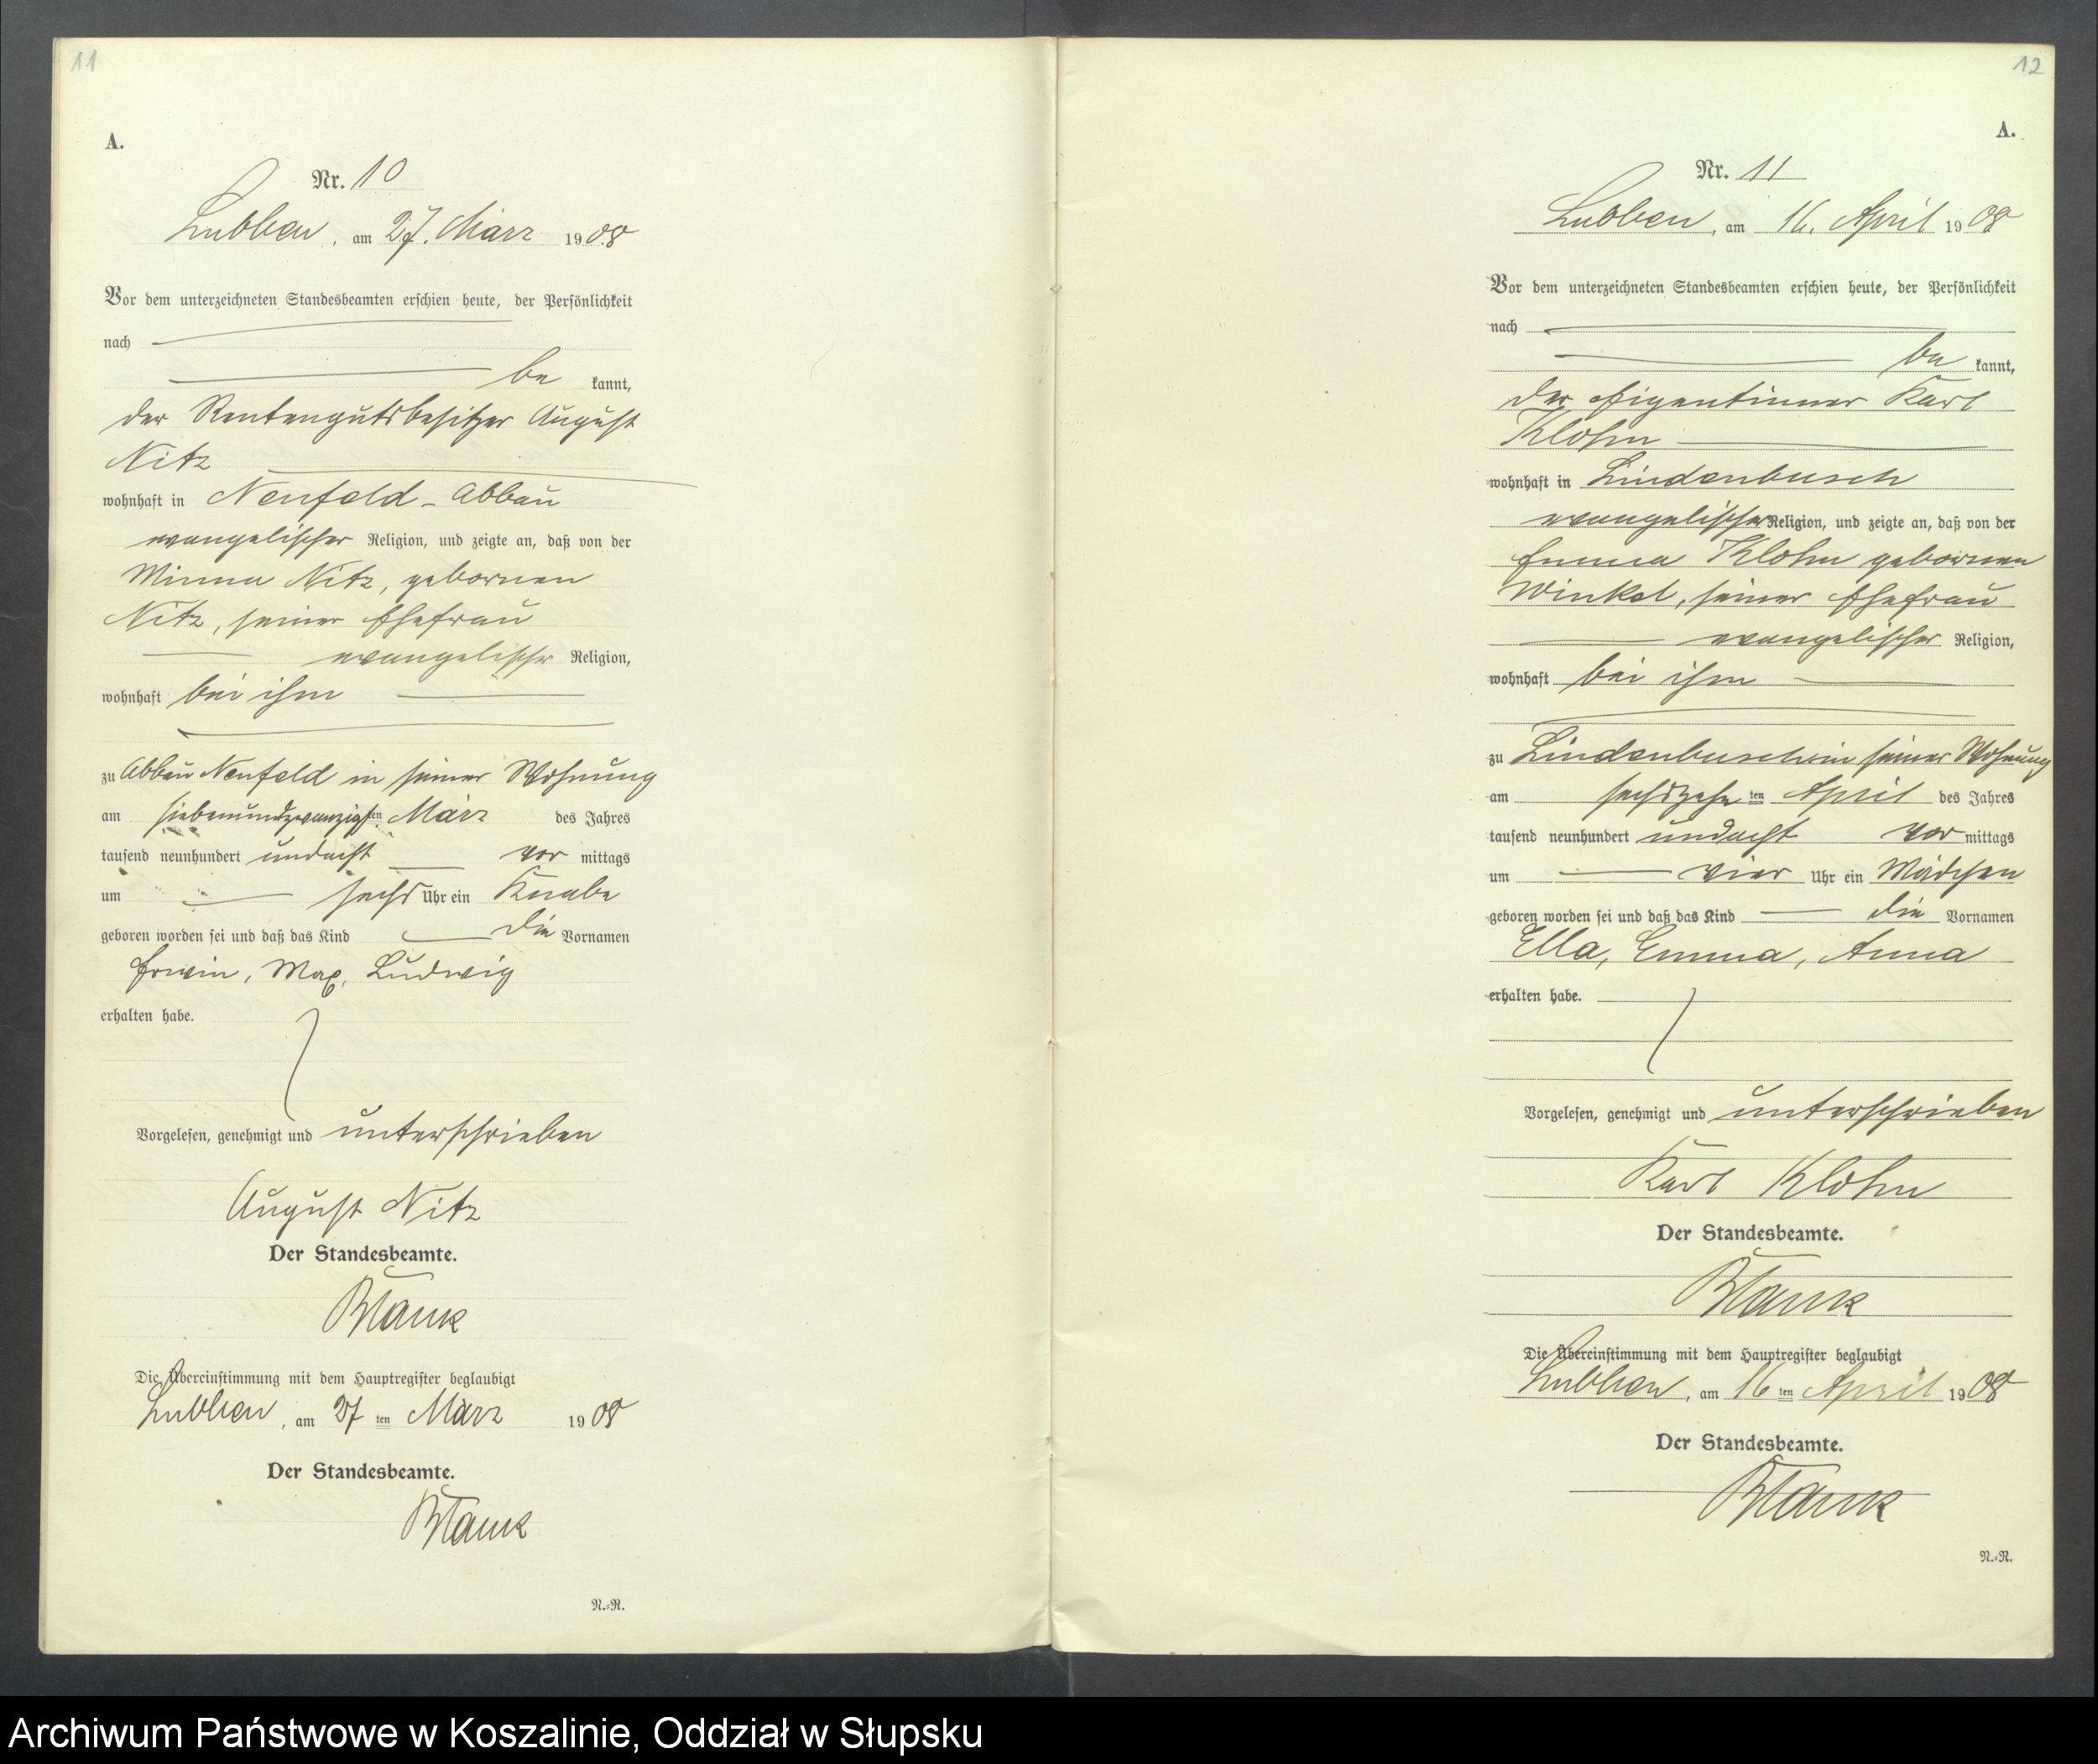 11
A.
Nr. 10
Lubben, am 27. März 1908
Vor dem unterzeichneten Standesbeamten erschien heute, der Persönlichkeit
nach
be kannt,
der Rentengutsbesitzer August
Nitz
wohnhaft in Neufeld - Abbau
evangelischer Religion, und zeigte an, daß von der
Minna Nitz, gebornen
Nitz, seiner Ehefrau
evangelischer Religion,
wohnhaft bei ihm
zu Abbau Neufeld in seiner Wohnung
am siebenundzwanzigsten März des Jahres
tausend neunhundert undacht vor mittags
um sechs Uhr ein Knabe
geboren worden sei und daß das Kind die Vornamen
Erwin, Max, Ludwig
erhalten habe.
Vorgelesen, genehmigt und unterschrieben
August Nitz
Der Standesbeamte.
Blank
Die Übereinstimmung mit dem Hauptregister beglaubigt
Lubben, am 27 ten März 1908
Der Standesbeamte.
Blank
N.=R.
12
A.
Nr. 11
Lubben, am 16. April 1908
Vor dem unterzeichneten Standesbeamten erschien heute, der Persönlichkeit
nach
be kannt,
der Eigentümer Karl
Klohn
wohnhaft in Lindenbusch
evangelischer Religion, und zeigte an, daß von der
Emma Klohn gebornen
Winkel, seiner Ehefrau
evangelischer Religion,
wohnhaft bei ihm
zu Lindenbusch in seiner Wohnung
am sechszehn ten April des Jahres
tausend neunhundert undacht vor mittags
um vier Uhr ein Mädchen
geboren worden sei und daß das Kind die Vornamen
Ella, Emma, Anna
erhalten habe.
Vorgelesen, genehmigt und unterschrieben
Karl Klohn
Der Standesbeamte.
Blank
Die Übereinstimmung mit dem Hauptregister beglaubigt
Lubben, am 16 ten April 1908
Der Standesbeamte.
Blank
N.=R.
Archiwum Państwowe w Koszalinie, Oddział w Słupsku